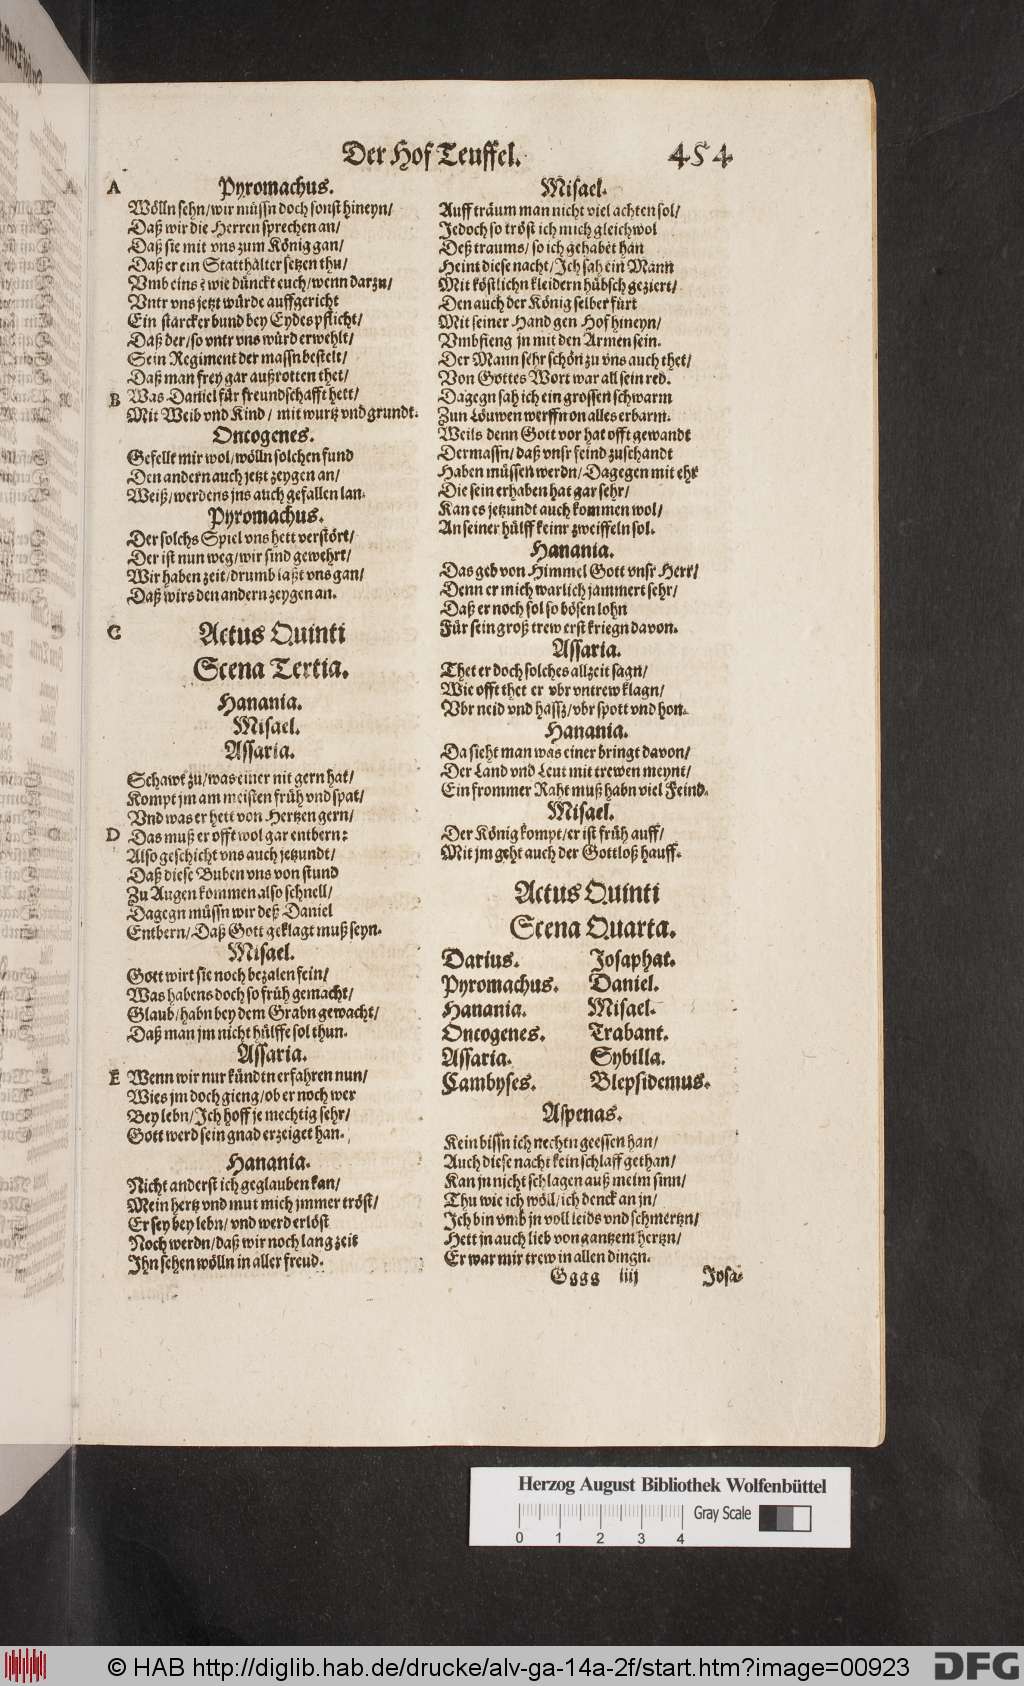 Der Hof Teuffel. 454
A Pyromachus.
Wölln sehn/wir müssn doch sonst hineyn/
Daß wir die Herren sprechen an/
Daß sie mit vns zum König gan/
Daß er ein Statthalter setzen thu/
Vmb eins z wie dünckt euch/wenn darzu/
Vntr vns jetzt würde auffgericht
Ein starcker bund bey Eydes pflicht/
Daß der/so vntr vns würd erwehlt/
Sein Regiment der massn bestelt/
Daß man frey gar außrotten thet/
B Was Daniel für freundschafft hett/
Mit Weib vnd Kind/ mit wurtz vnd grundt.
Oncogenes.
Gefellt mir wol/wölln solchen fund
Den andern auch jetzt zeygen an/
Weiß/werdens jns auch gefallen lan.
Pyromachus.
Der solchs Spiel vns hett verstört/
Der ist nun weg/wir sind gewehrt/
Wir haben zeit/drumb laßt vns gan/
Daß wirs den andern zeygen an.
C Actus Quinti
Scena Tertia.
Hanania.
Misael.
Assaria.
Schawt zu/was einer nit gern hat/
Kompt jm am meisten früh vnd spat/
Vnd was er hett von Hertzen gern/
D Das muß er offt wol gar entbern:
Also geschicht vns auch jetzundt/
Daß diese Buben vns von stund
Zu Augen kommen also schnell/
Dagegn müssn wir deß Daniel
Entbern/Daß Gott geklagt muß seyn.
Misael.
Gott wirt sie noch bezalen fein/
Was habens doch so früh gemacht/
Glaub/habn bey dem Grabn gewacht/
Daß man jm nicht hülffe sol thun.
Assaria.
E Wenn wir nur kündtn erfahren nun/
Wies jm doch gieng/ob er noch wer
Bey lebn/Ich hoff je mechtig sehr/
Gott werd sein gnad erzeiget han.
Hanania.
Nicht anderst ich geglauben kan/
Mein hertz vnd mut mich jmmer tröst/
Er sey bey lebn/vnd werd erlöst
Noch werdn/daß wir noch lang zeit
Ihn sehen wölln in aller freud.
Misael.
Auff träum man nicht viel achten sol/
Jedoch so tröst ich mich gleichwol
Deß traums/so ich gehabet han
Heint diese nacht/Ich sah ein Mann
Mit köstlichn kleidern hübsch geziert/
Den auch der König selber fürt
Mit seiner Hand gen Hof hineyn/
Vmbfieng jn mit den Armen sein.
Der Mann sehr schön zu vns auch thet/
Von Gottes Wort war all sein red.
Dagegn sah ich ein grossen schwarm
Zun Löuwen werffn on alles erbarm.
Weils denn Gott vor hat offt gewandt
Dermassn/daß vnsr feind zuschandt
Haben müssen werdn/Dagegen mit ehr
Die sein erhaben hat gar sehr/
Kan es jetzundt auch kommen wol/
An seiner hülff keinr zweiffeln sol.
Hanania.
Das geb von Himmel Gott vnsr Herr/
Denn er mich warlich jammert sehr/
Daß er noch sol so bösen lohn
Für sein groß trew erst kriegn davon.
Assaria.
Thet er doch solches allzeit sagn/
Wie offt thet er vbr vntrew klagn/
Vbr neid vnd hassz/vbr spott vnd hon.
Hanania.
Da sieht man was einer bringt davon/
Der Land vnd Leut mit trewen meynt/
Ein frommer Raht muß habn viel Feind.
Misael.
Der König kompt/er ist früh auff/
Mit jm geht auch der Gottloß hauff.
Actus Quinti
Scena Quarta.
Darius. Josaphat.
Pyromachus. Daniel.
Hanania. Misael.
Oncogenes. Trabant.
Assaria. Sybilla.
Cambyses. Blepsidemus.
Aspenas.
Kein bissn ich nechtn geessen han/
Auch diese nacht kein schlaff gethan/
Kan jn nicht schlagen auß meim sinn/
Thu wie ich wöll/ich denck an jn/
Ich bin vmb jn voll leids vnd schmertzn/
Hett jn auch lieb von gantzem hertzn/
Er war mir trew in allen dingn.
Gggg iiij Josa-
Herzog August Bibliothek Wolfenbüttel
Gray Scale
0 1 2 3 4
© HAB http://diglib.hab.de/drucke/alv-ga-14a-2f/start.htm?image=00923 DFG